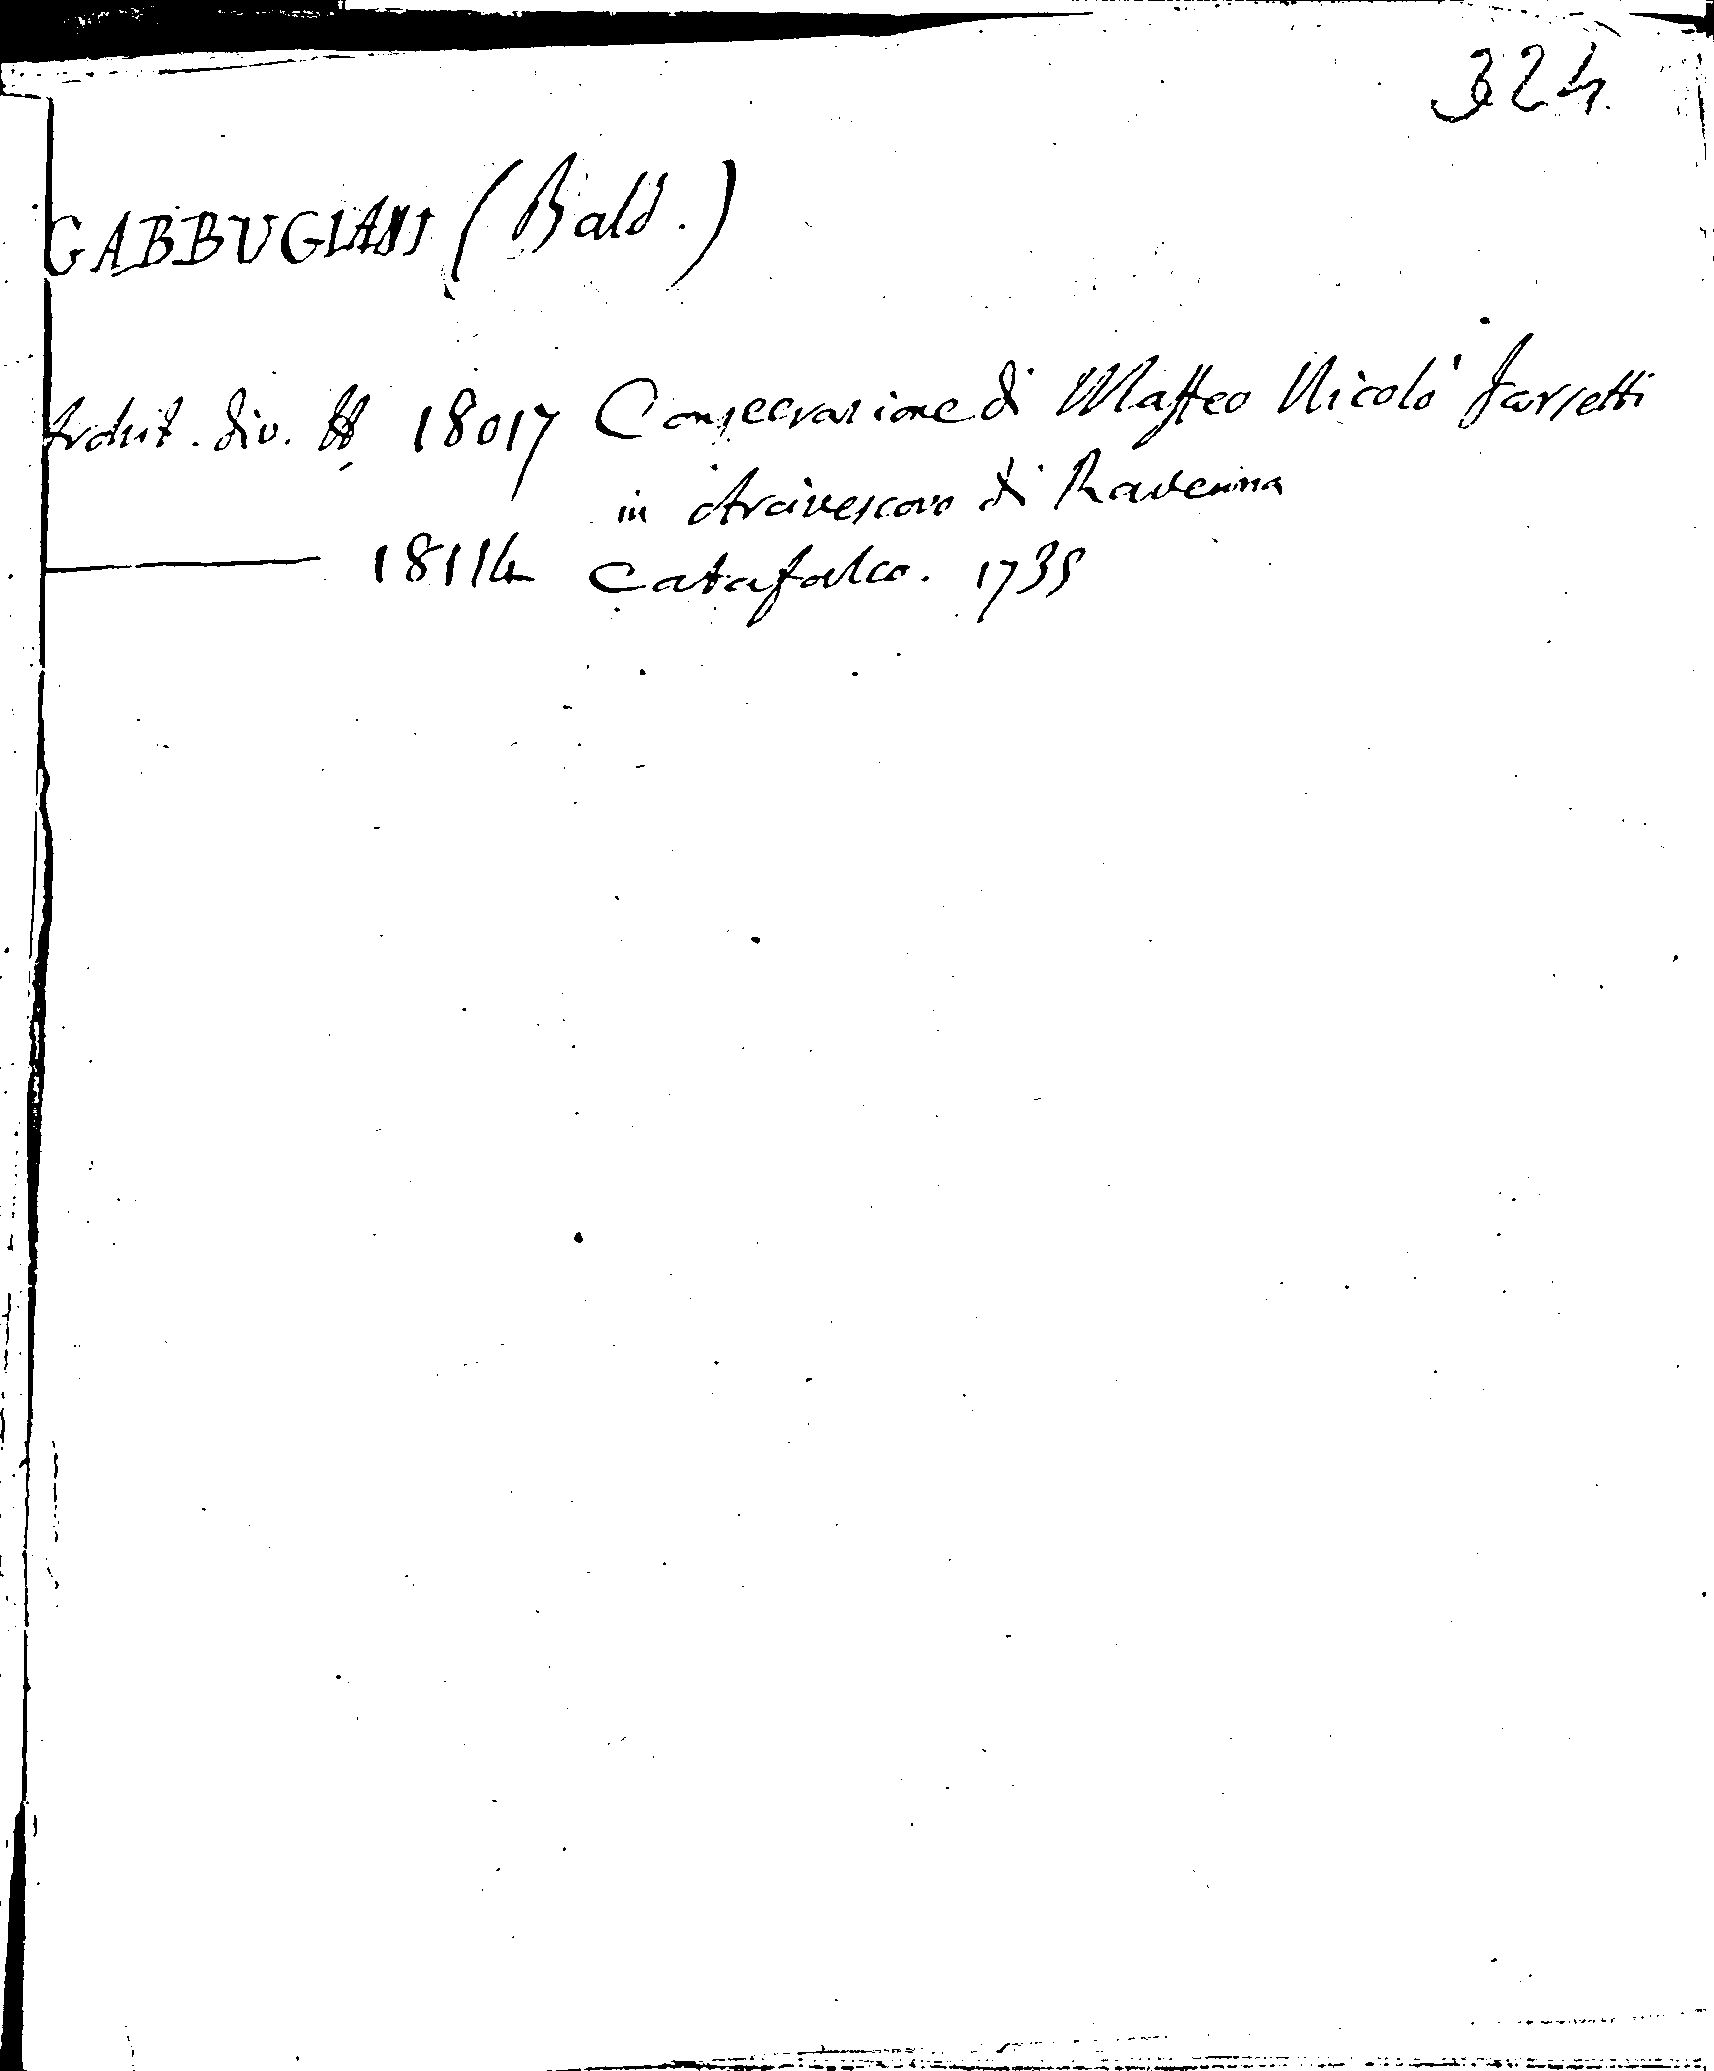 324
GABBUGIANI (Bald.)
Archit. div. 18017 Consecrazione di Maffeo Nicolò Farsetti
in Arcivescovo di Ravenna
18114 Catafalco. 1735